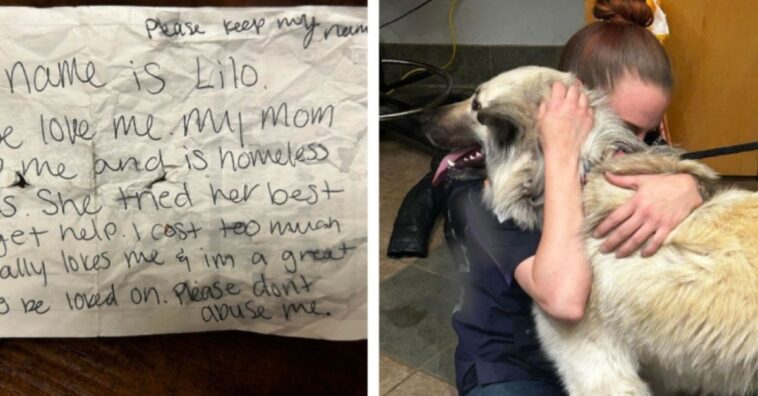 Please keep my name
name is Lilo.
love me. My Mom
me and is homeless
She tried her best
get help. I cost too much
loves me & im a great
be loved on. Please dont
abuse me.